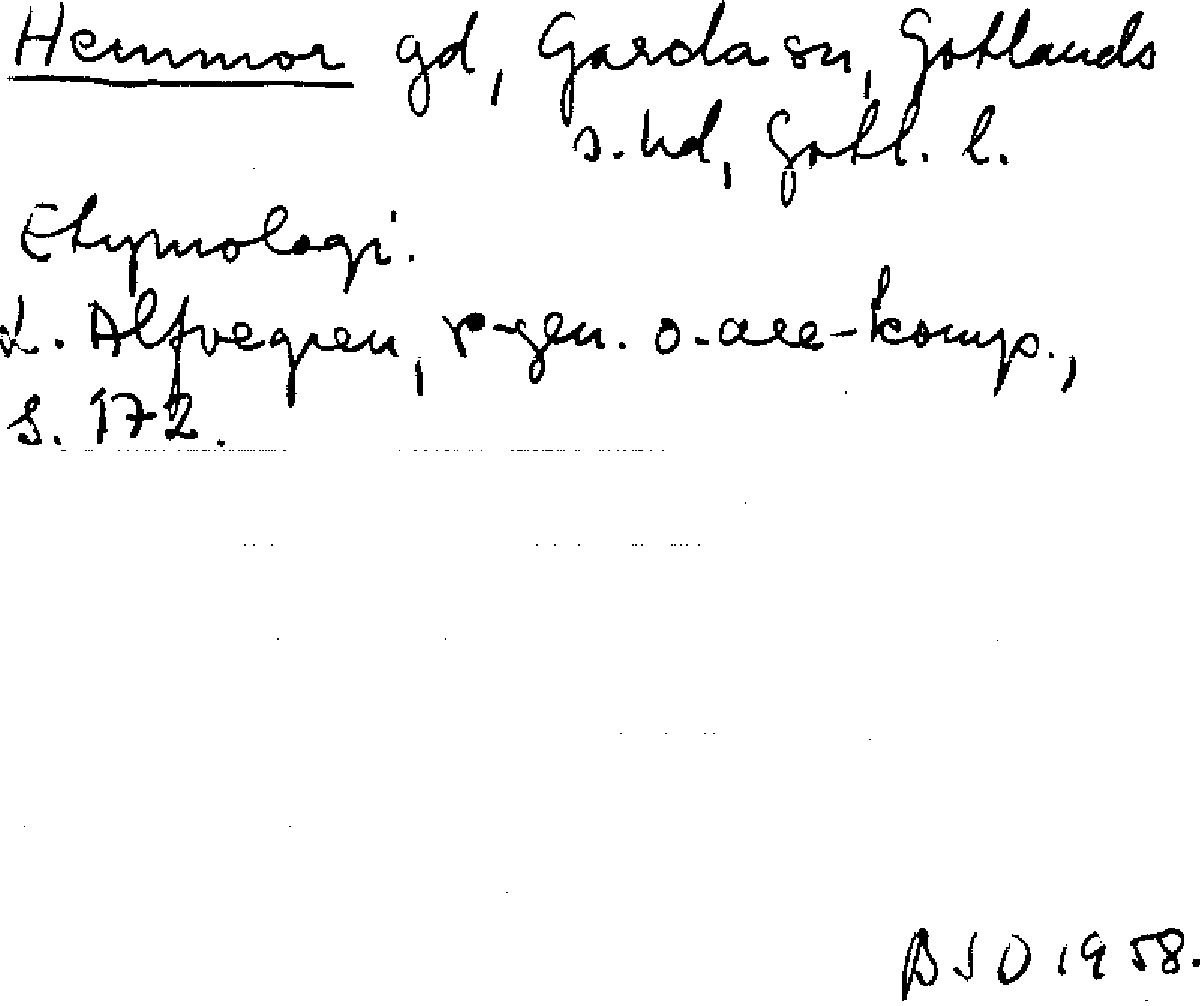 Hemmor gd, Garda sn, Gotlands
s. hd, Gotl. l.
Etymologi.
L. Alfvegren, r-gen. o. ack-komp.,
s. 172.
BSO 1958.